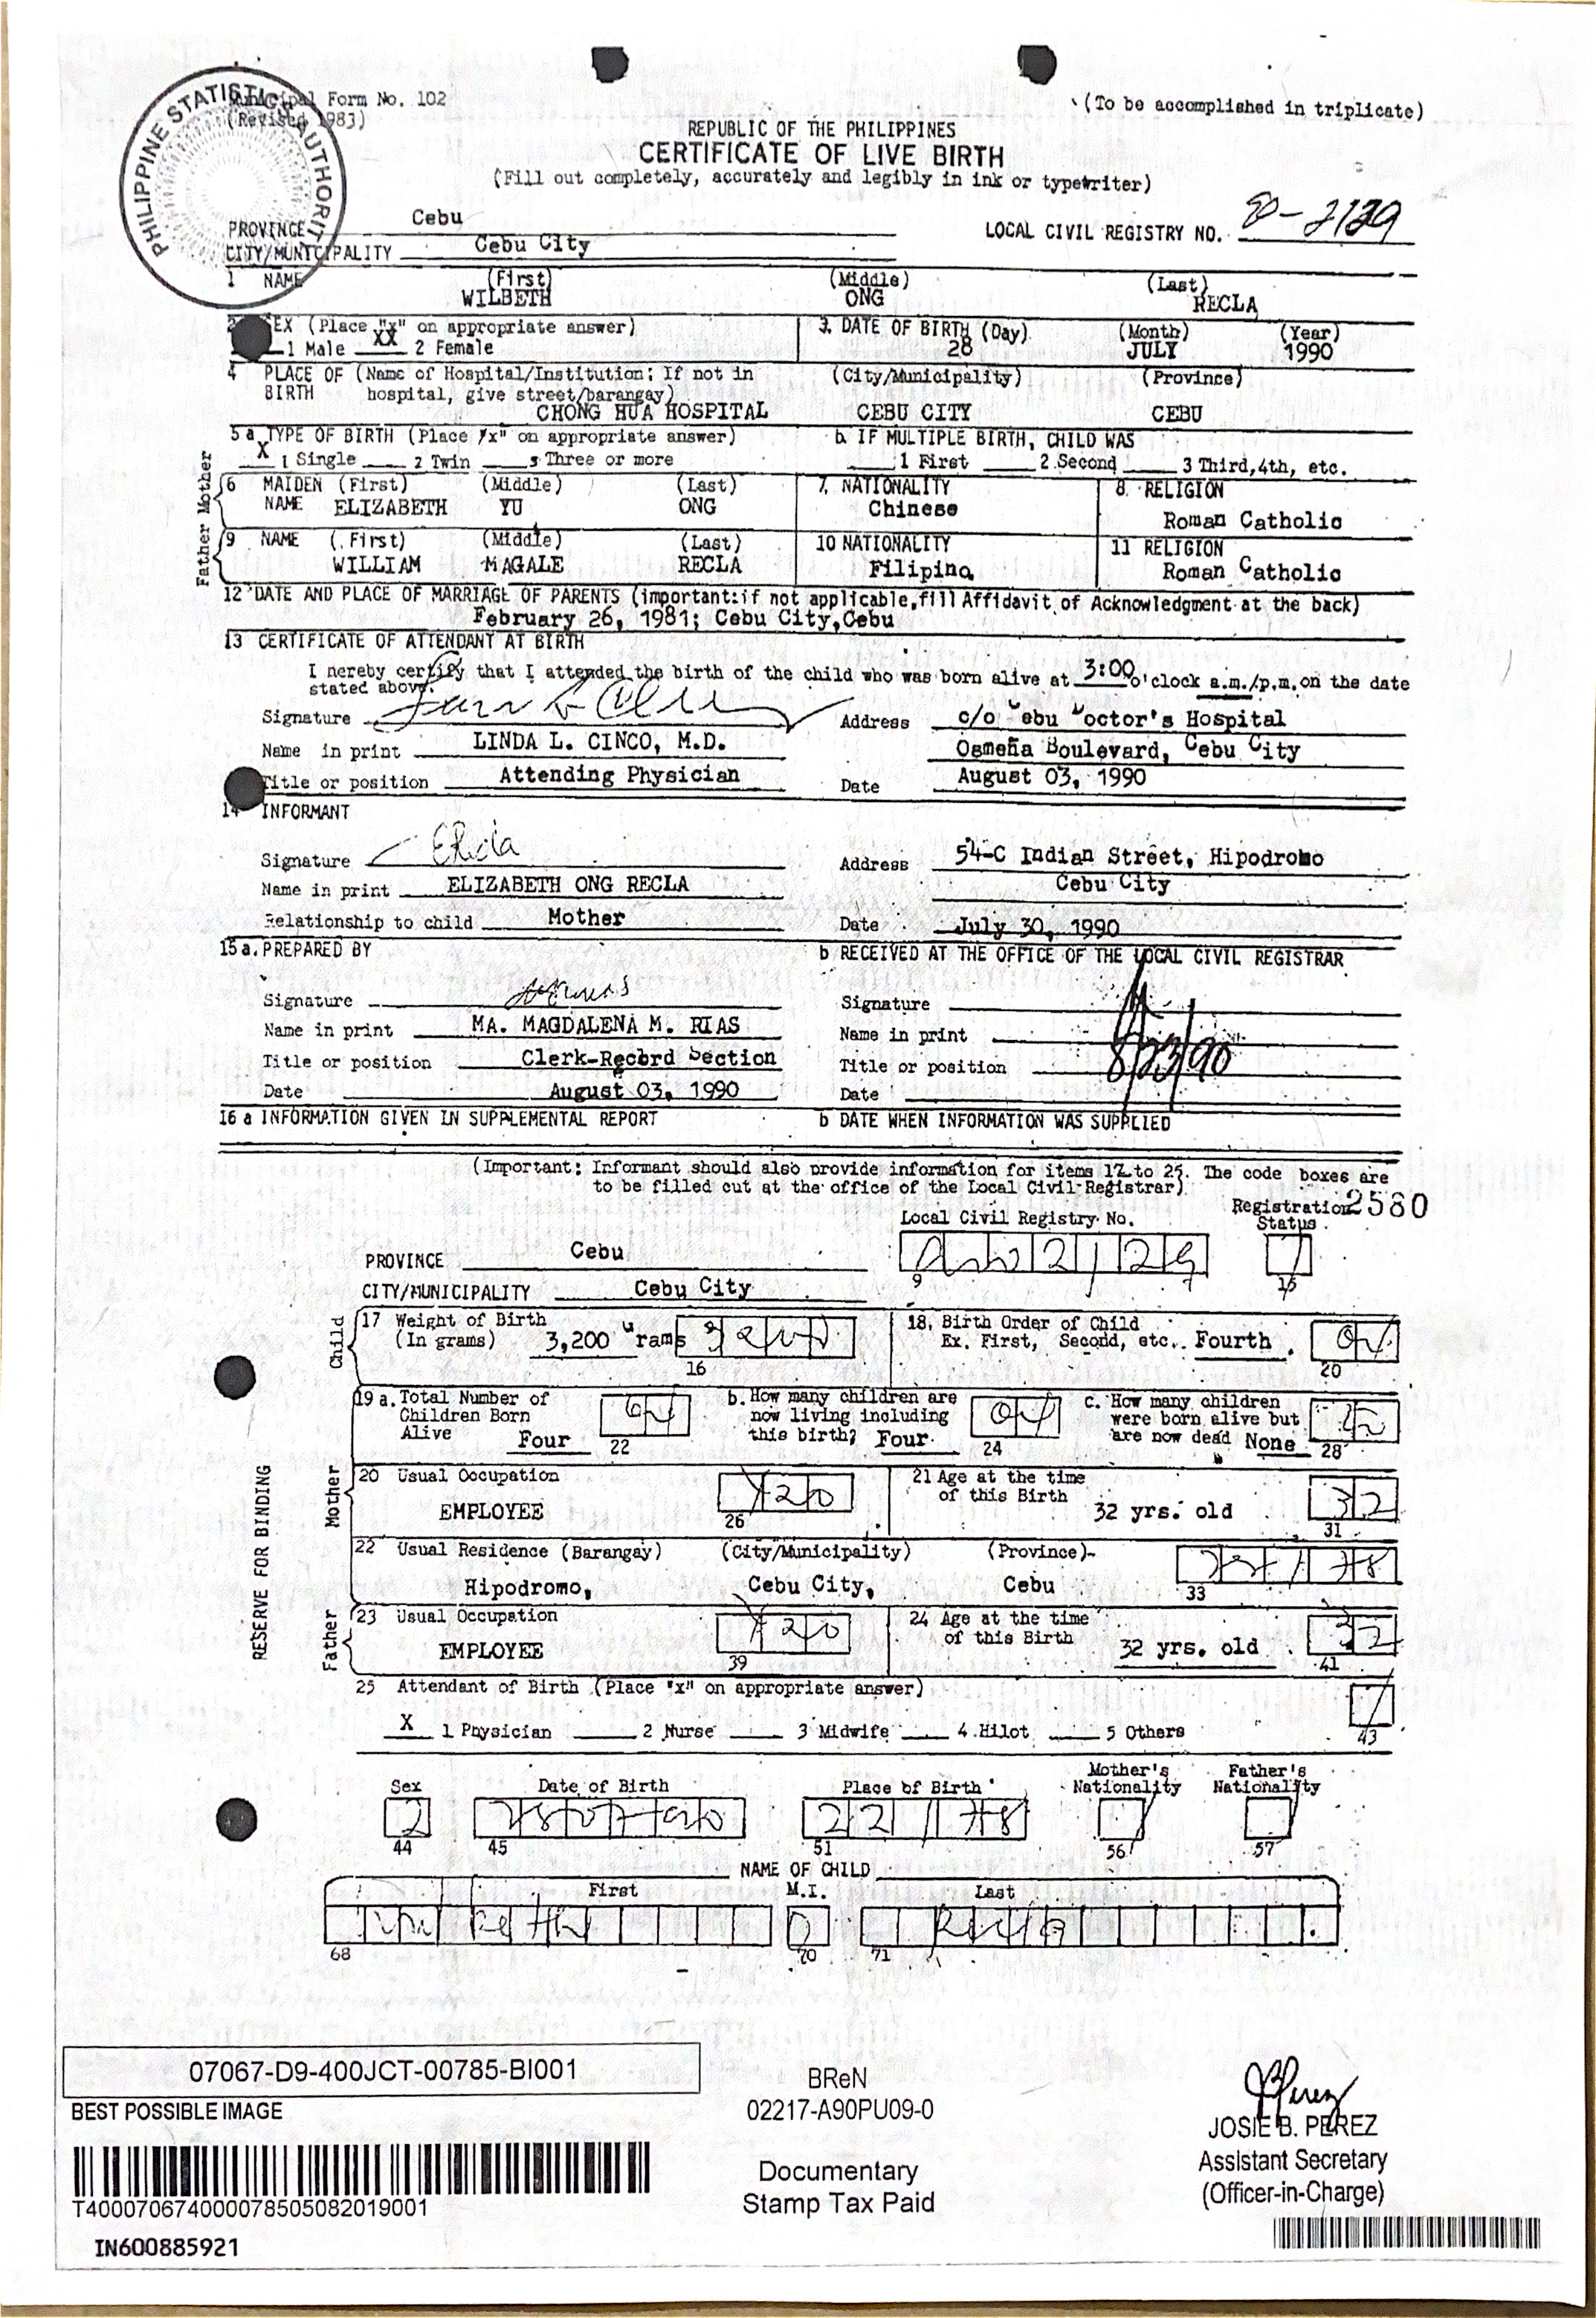 Municipal Form No. 102
(Revised 1983)
(To be accomplished in triplicate)
PHILIPPINE STATISTICS AUTHORITY
REPUBLIC OF THE PHILIPPINES
CERTIFICATE OF LIVE BIRTH
(Fill out completely, accurately and legibly in ink or typewriter)
PROVINCE Cebu
LOCAL CIVIL REGISTRY NO. 90-2129
CITY/MUNICIPALITY Cebu City
1 NAME (First) (Middle) (Last)
WILBETH ONG RECLA
2 SEX (Place "x" on appropriate answer) 3. DATE OF BIRTH (Day) (Month) (Year)
1 Male XX 2 Female 28 JULY 1990
4 PLACE OF (Name of Hospital/Institution; If not in (City/Municipality) (Province)
BIRTH hospital, give street/barangay)
CHONG HUA HOSPITAL CEBU CITY CEBU
5 a TYPE OF BIRTH (Place "x" on appropriate answer) b. IF MULTIPLE BIRTH, CHILD WAS
X 1 Single 2 Twin 3 Three or more 1 First 2 Second 3 Third, 4th, etc.
Mother
6 MAIDEN (First) (Middle) (Last) 7. NATIONALITY 8. RELIGION
NAME ELIZABETH YU ONG Chinese Roman Catholic
Father
9 NAME (First) (Middle) (Last) 10 NATIONALITY 11 RELIGION
WILLIAM MAGALE RECLA Filipino Roman Catholic
12 DATE AND PLACE OF MARRIAGE OF PARENTS (important: if not applicable, fill Affidavit of Acknowledgment at the back)
February 26, 1981; Cebu City, Cebu
13 CERTIFICATE OF ATTENDANT AT BIRTH
I hereby certify that I attended the birth of the child who was born alive at 3:00 o'clock a.m./p.m. on the date
stated above.
Signature Address c/o Cebu Doctor's Hospital
Name in print LINDA L. CINCO, M.D. Osmeña Boulevard, Cebu City
Title or position Attending Physician Date August 03, 1990
14 INFORMANT
Signature Address 54-C Indian Street, Hipodromo
Name in print ELIZABETH ONG RECLA Cebu City
Relationship to child Mother Date July 30, 1990
15 a. PREPARED BY b RECEIVED AT THE OFFICE OF THE LOCAL CIVIL REGISTRAR
Signature Signature
Name in print MA. MAGDALENA M. RIAS Name in print
Title or position Clerk-Record Section Title or position 8/23/90
Date August 03, 1990 Date
16 a INFORMATION GIVEN IN SUPPLEMENTAL REPORT b DATE WHEN INFORMATION WAS SUPPLIED
(Important: Informant should also provide information for items 17 to 25. The code boxes are
to be filled out at the office of the Local Civil Registrar)
Local Civil Registry No. Registration 2580
Status
PROVINCE Cebu
9 15
CITY/MUNICIPALITY Cebu City
RESERVE FOR BINDING
Child
17 Weight of Birth 18. Birth Order of Child
(In grams) 3,200 Grams 3200 Ex. First, Second, etc. Fourth 04
16 20
19 a. Total Number of b. How many children are c. How many children
Children Born 04 now living including 04 were born alive but
Alive Four this birth? Four are now dead None
22 24 28
Mother
20 Usual Occupation 21 Age at the time
EMPLOYEE of this Birth 32 yrs. old 32
26 31
22 Usual Residence (Barangay) (City/Municipality) (Province)
Hipodromo, Cebu City, Cebu
33
Father
23 Usual Occupation 24 Age at the time
EMPLOYEE of this Birth 32 yrs. old 32
39 41
25 Attendant of Birth (Place "x" on appropriate answer)
X 1 Physician 2 Nurse 3 Midwife 4 Hilot 5 Others
43
Sex Date of Birth Place of Birth Mother's Nationality Father's Nationality
2 280790
44 45 51 56 57
NAME OF CHILD
First M.I. Last
68 70 71
07067-D9-400JCT-00785-BI001
BEST POSSIBLE IMAGE
T400070674000078505082019001
IN600885921
BReN
02217-A90PU09-0
Documentary
Stamp Tax Paid
JOSIE B. PEREZ
Assistant Secretary
(Officer-in-Charge)